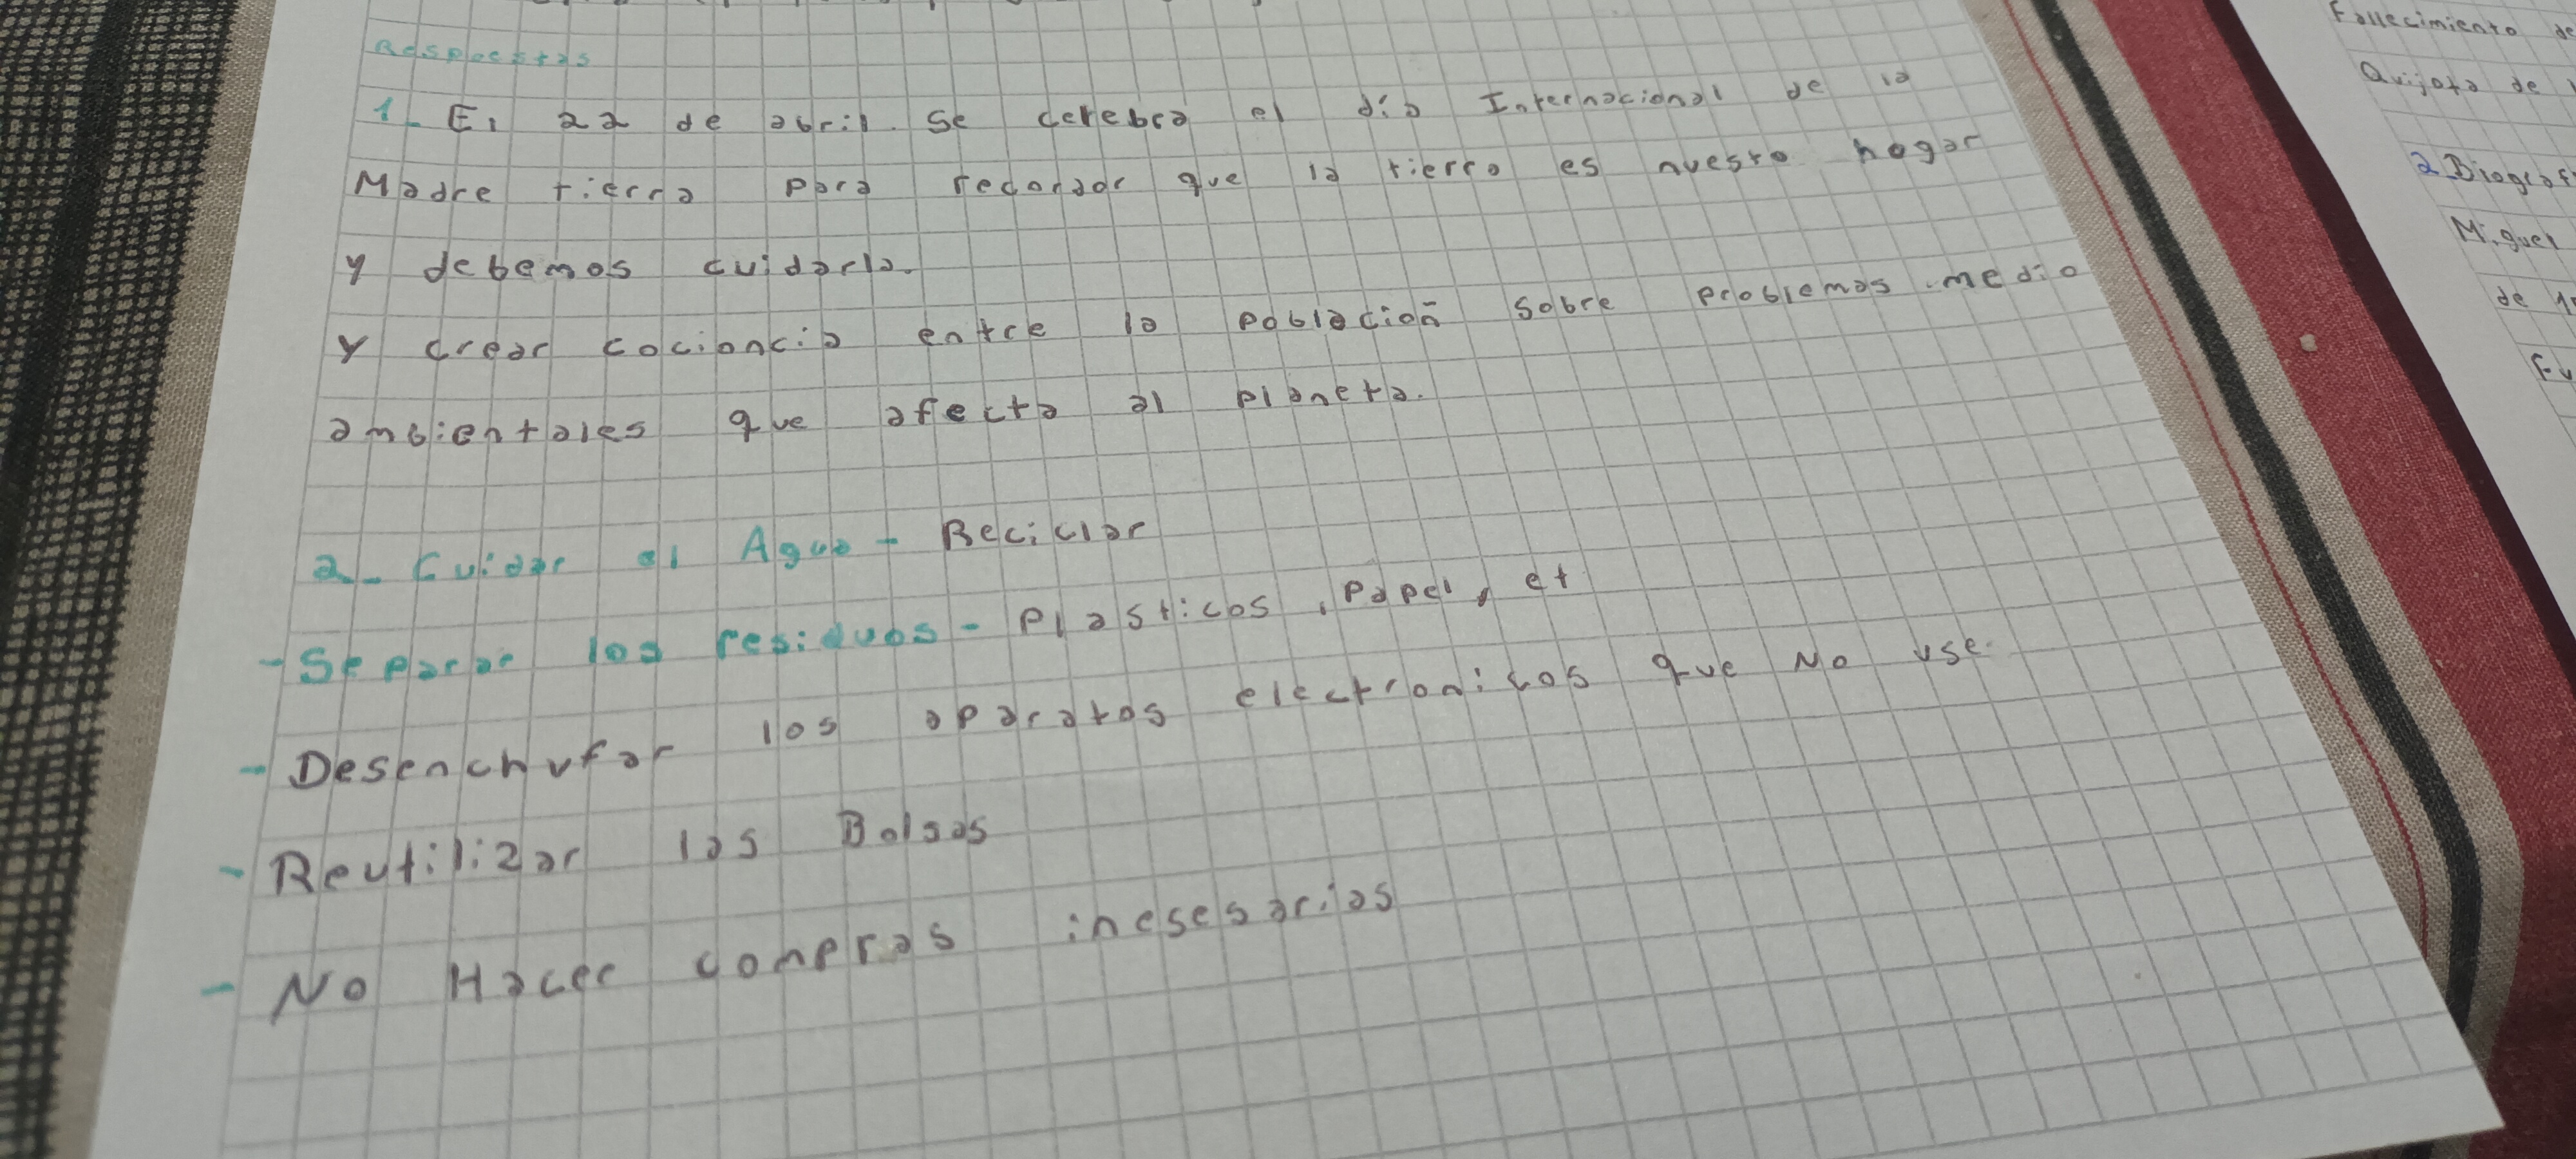 Respuestas
1_ El 22 de abril. Se celebra el día Internacional de la
Madre tierra para recordar que la tierra es nuestro hogar
y debemos cuidarla.
y crear cocioncia entre la población sobre problemas medio
ambientales que afecta al planeta.
2_ Cuidar el Agua - Reciclar
- Separar los residuos - Plasticos, Papel, et
- Desenchufar los aparatos electronicos que No use.
- Reutilizar las Bolsas
- No Hacer conpras inesesarias
Fallecimiento de
Quijota de
2 Biograf
Miguel
de